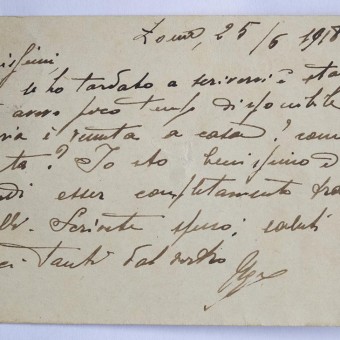 Zona, 25/6 1918
issimi,
se ho tardato a scrivervi è sta
avere poco tempo disponibile
ria è venuta a casa? com
ta? Io sto benissimo e
di esser completamente
Scrivete spesso; saluti
ci tanti dal vostro